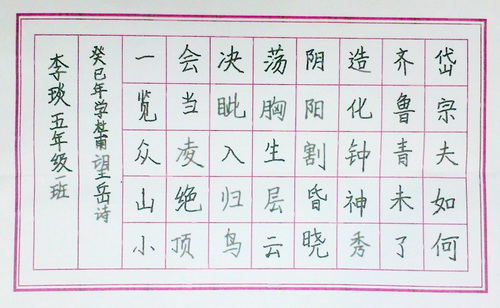 岱宗夫如何
齐鲁青未了
造化钟神秀
阴阳割昏晓
荡胸生层云
决眦入归鸟
会当凌绝顶
一览众山小
癸巳年学杜甫望岳诗
李琰五年级一班